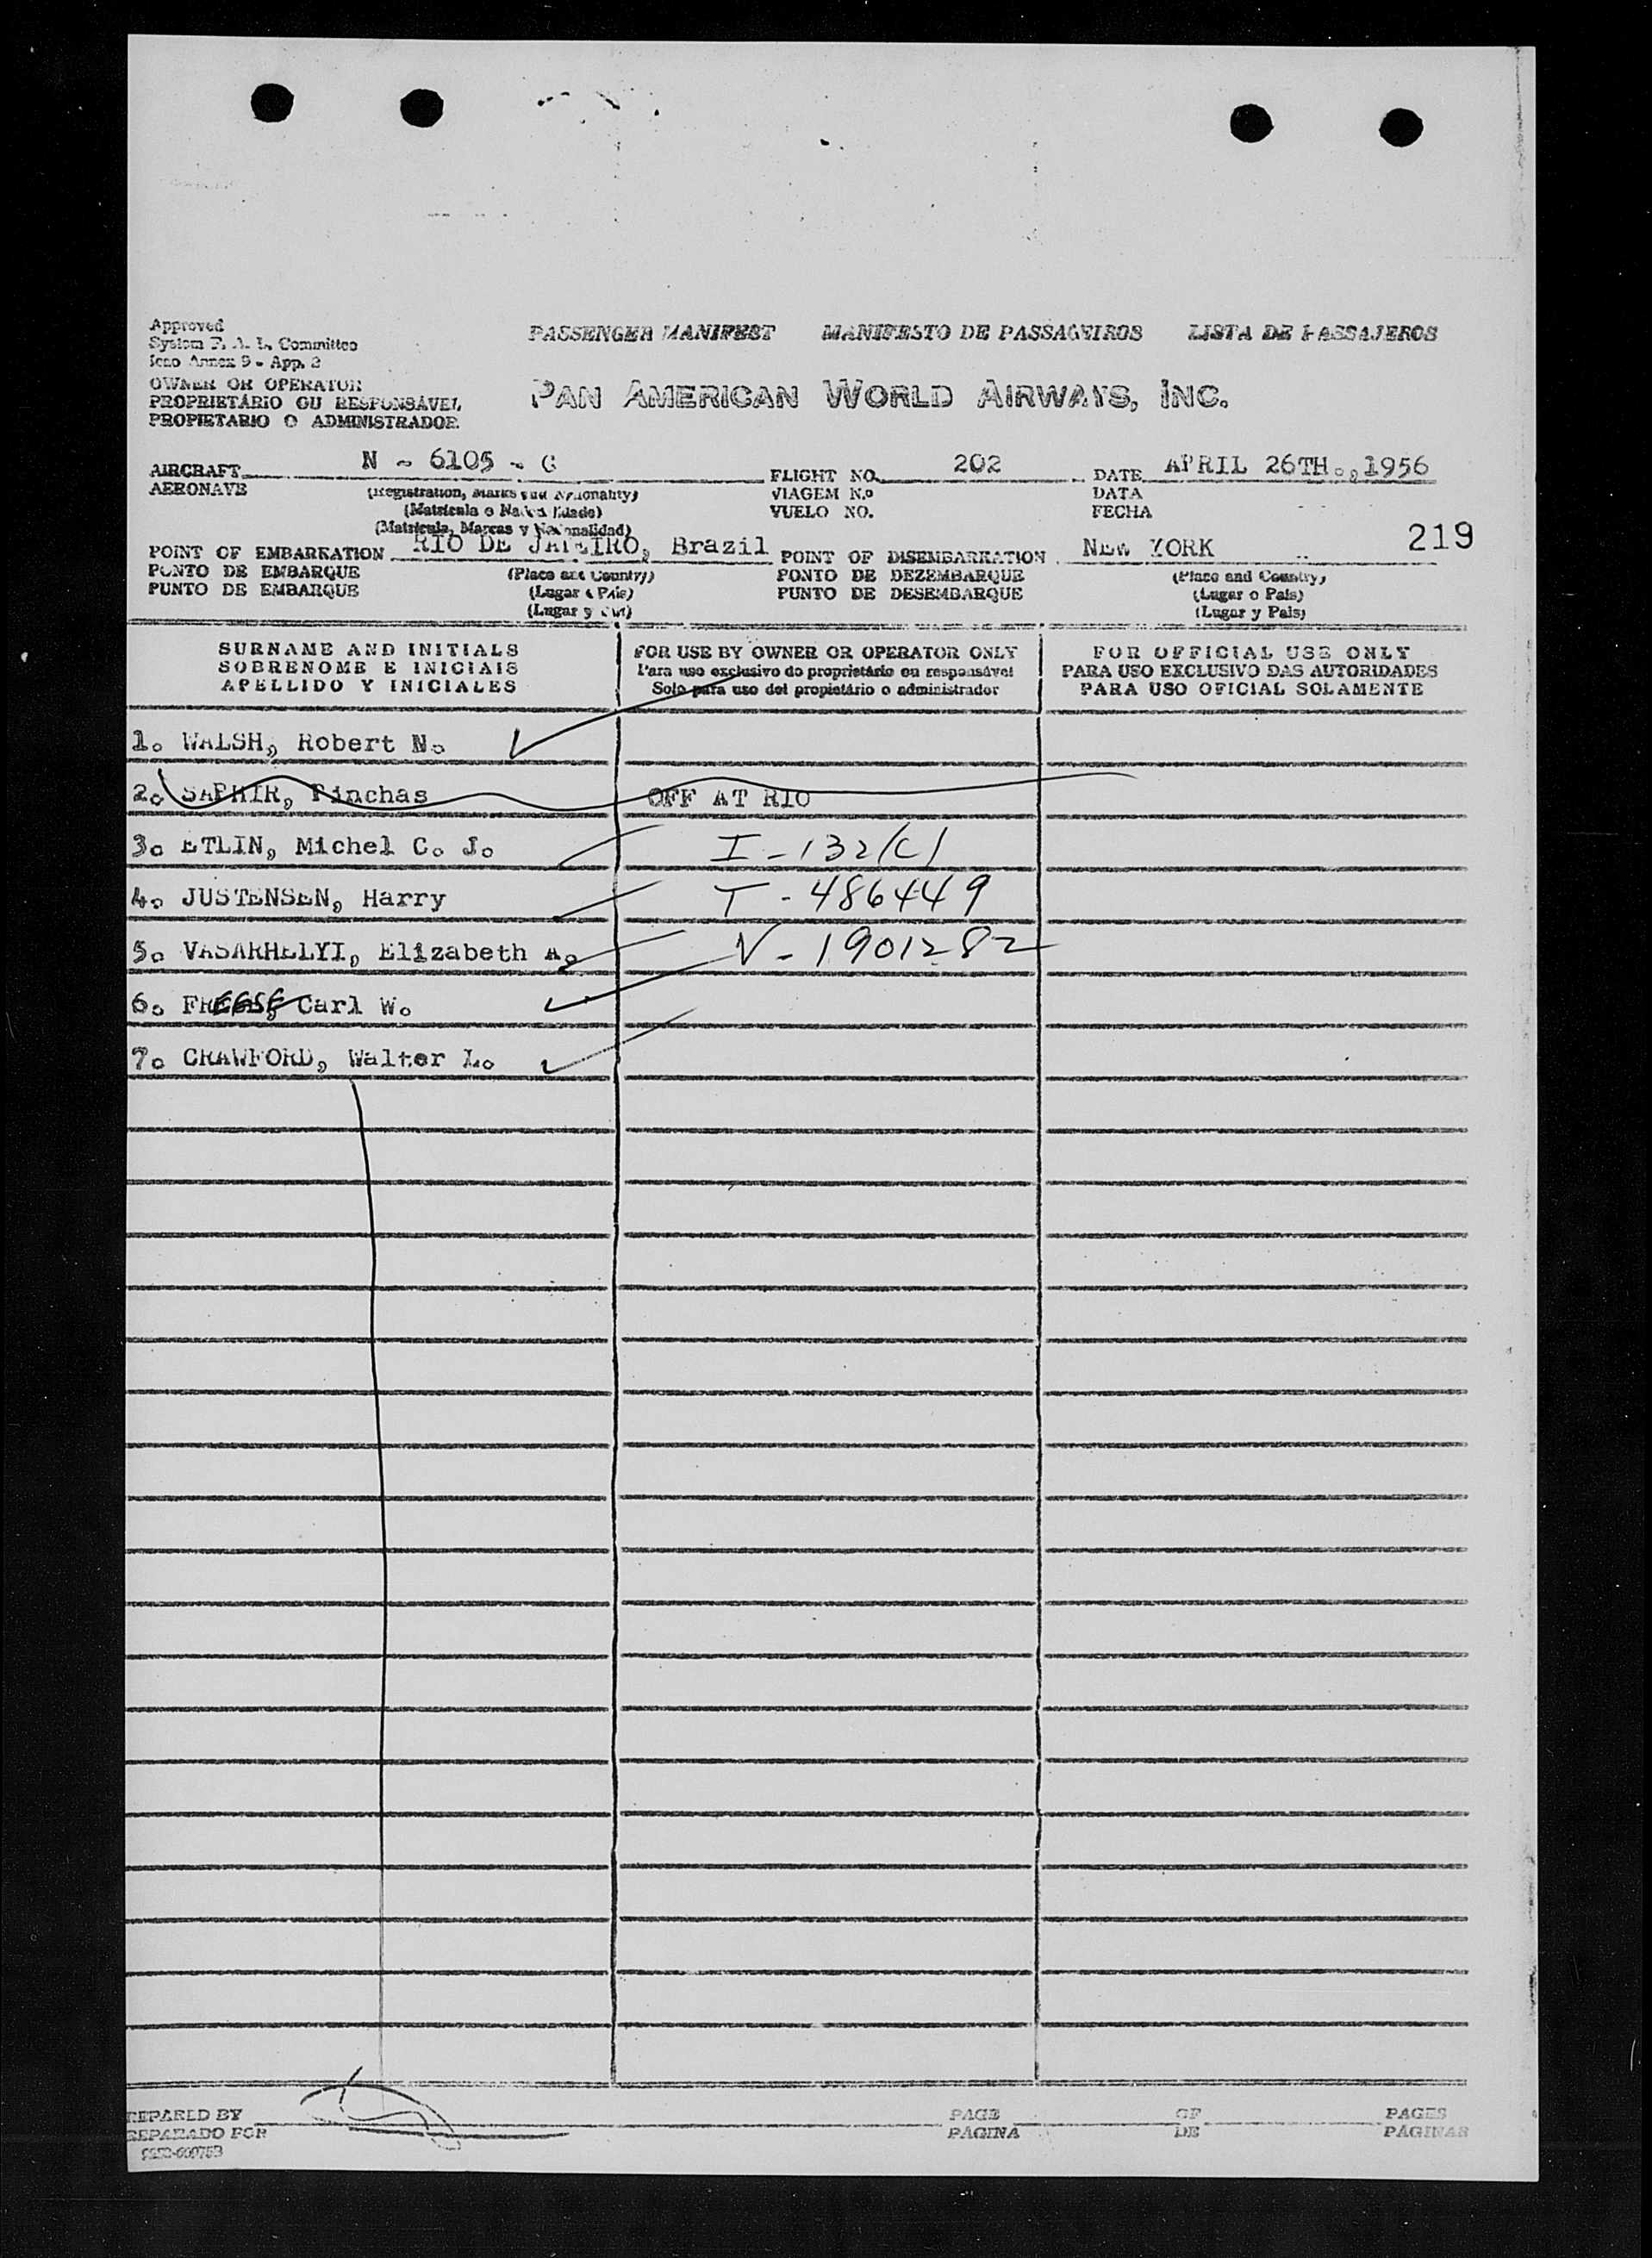 Approved
System F. A. L. Committee
Icao Annex 9 - App. 2
PASSENGER MANIFEST MANIFESTO DE PASSAGEIROS LISTA DE PASSAJEROS
OWNER OR OPERATOR
PROPRIETÁRIO OU RESPONSÁVEL
PROPIETARIO O ADMINISTRADOR
PAN AMERICAN WORLD AIRWAYS, INC.
AIRCRAFT N - 6105 - C FLIGHT NO. 202 DATE APRIL 26TH., 1956
AERONAVE (Registration, Marks and Nationality) VIAGEM N.o DATA
(Matricula e Nacionalidade) VUELO NO. FECHA
(Matricula, Marcas y Nacionalidad)
219
POINT OF EMBARKATION RIO DE JANEIRO, Brazil POINT OF DISEMBARKATION NEW YORK
PONTO DE EMBARQUE (Place and Country) PONTO DE DEZEMBARQUE (Place and Country)
PUNTO DE EMBARQUE (Lugar e Pais) PUNTO DE DESEMBARQUE (Lugar o Pais)
(Lugar y Pais) (Lugar y Pais)
SURNAME AND INITIALS FOR USE BY OWNER OR OPERATOR ONLY FOR OFFICIAL USE ONLY
SOBRENOME E INICIAIS Para uso exclusivo do proprietário ou responsável PARA USO EXCLUSIVO DAS AUTORIDADES
APELLIDO Y INICIALES Solo para uso del propietário o administrador PARA USO OFICIAL SOLAMENTE
1. WALSH, Robert N.
2. SAPHIR, Pinchas OFF AT RIO
3. ETLIN, Michel C. J. I - 132(c)
4. JUSTENSEN, Harry T - 486449
5. VASARHELYI, Elizabeth A. V - 1901282
6. FREESE, Carl W.
7. CRAWFORD, Walter L.
REPARED BY PAGE OF PAGES
REPARADO POR PAGINA DE PAGINAS